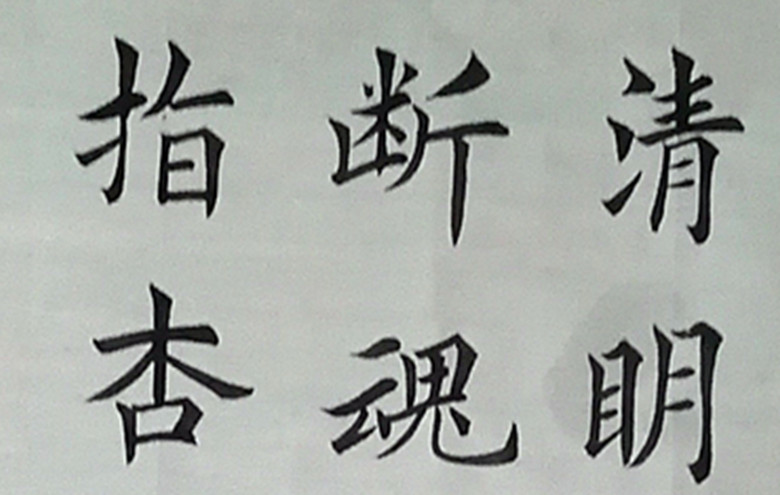 清明
断魂
指杏